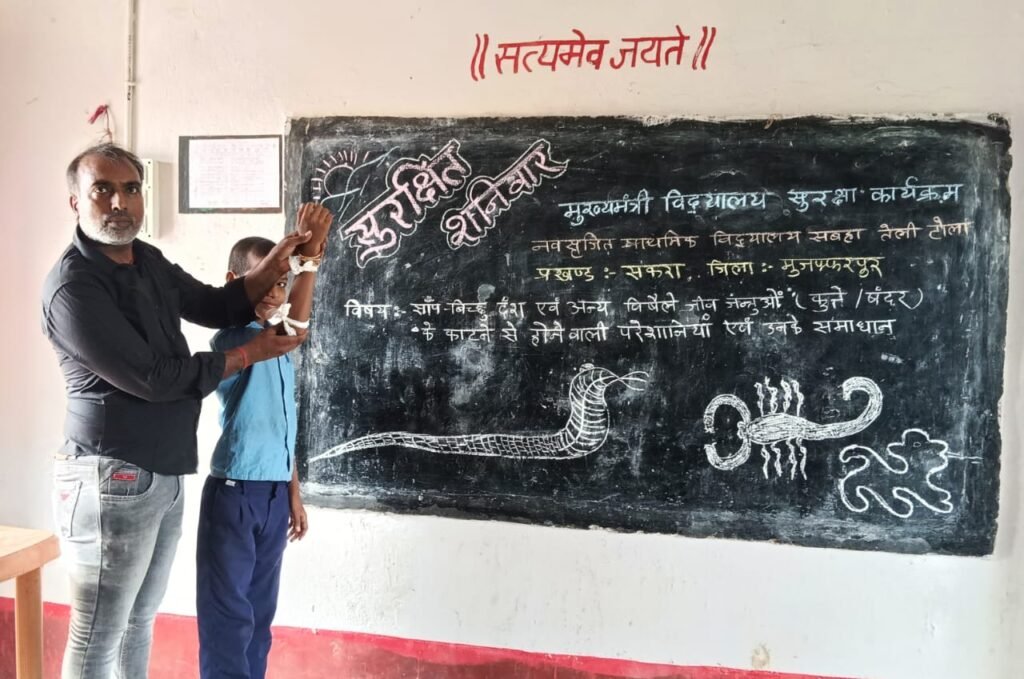 ॥ सत्यमेव जयते ॥
सुरक्षित
शनिवार
मुख्यमंत्री विद्यालय सुरक्षा कार्यक्रम
नवसृजित प्राथमिक विद्यालय सबहा तेली टोला
प्रखण्ड :- सकरा, जिला :- मुजफ्फरपुर
विषय :- साँप-बिच्छु दंश एवं अन्य विषैले जीव जन्तुओं (कुत्ते / बंदर)
के काटने से होने वाली परेशानियाँ एवं उनके समाधान